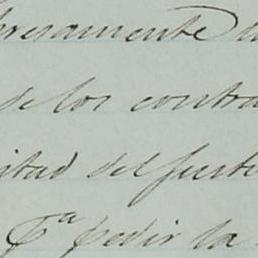 presamente la
de los contra
itad del juste
Pª pedir la